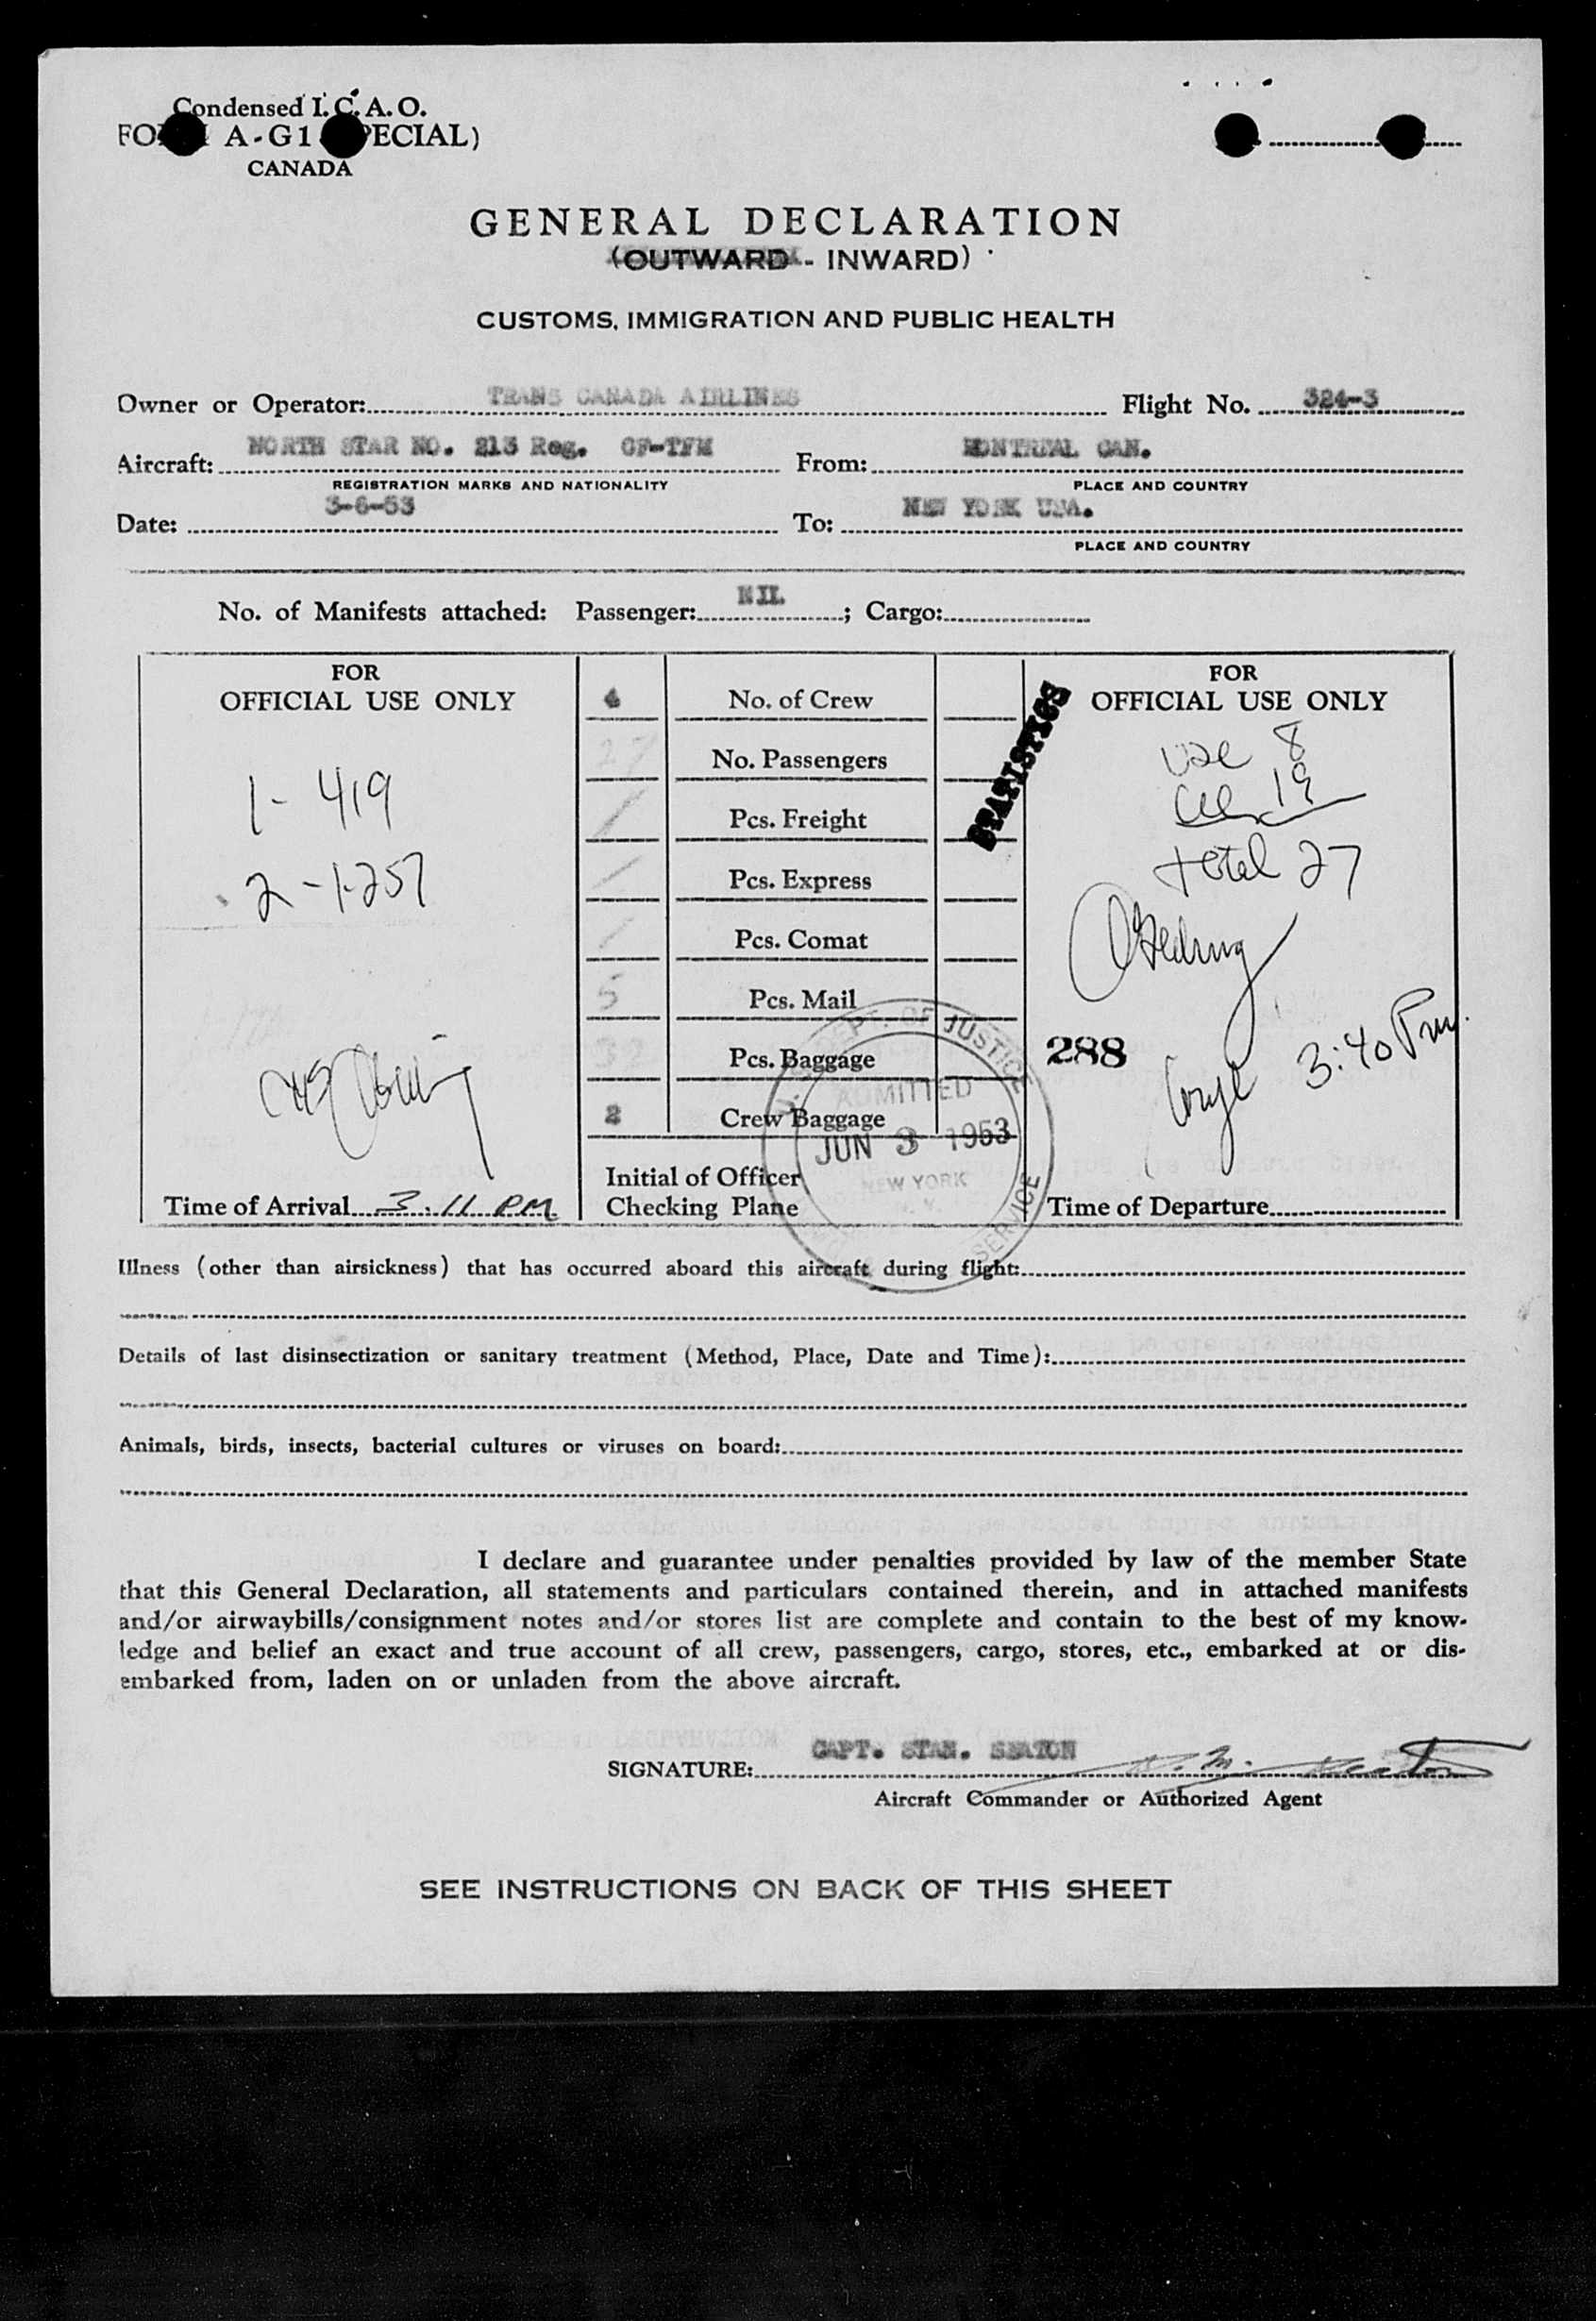 Condensed I.C.A.O.
FORM A-G1 (SPECIAL)
CANADA
GENERAL DECLARATION
(OUTWARD - INWARD)
CUSTOMS, IMMIGRATION AND PUBLIC HEALTH
Owner or Operator: TRANS CANADA AIRLINES Flight No. 324-3
Aircraft: NORTH STAR NO. 213 Reg. CF-TFM From: MONTREAL CAN.
REGISTRATION MARKS AND NATIONALITY PLACE AND COUNTRY
Date: 3-6-53 To: NEW YORK USA.
PLACE AND COUNTRY
No. of Manifests attached: Passenger: NIL ; Cargo:
FOR
OFFICIAL USE ONLY
1- 419
2-1-257
Time of Arrival 3:11 PM
4 No. of Crew
27 No. Passengers
/ Pcs. Freight
/ Pcs. Express
/ Pcs. Comat
5 Pcs. Mail
32 Pcs. Baggage
2 Crew Baggage
Initial of Officer
Checking Plane
DEPT. OF JUSTICE
ADMITTED
JUN 3 1953
NEW YORK
N. Y.
SERVICE
STATISTICS
FOR
OFFICIAL USE ONLY
8
19
total 27
288
3:40 Pm.
Time of Departure
Illness (other than airsickness) that has occurred aboard this aircraft during flight:
Details of last disinsectization or sanitary treatment (Method, Place, Date and Time):
Animals, birds, insects, bacterial cultures or viruses on board:
I declare and guarantee under penalties provided by law of the member State
that this General Declaration, all statements and particulars contained therein, and in attached manifests
and/or airwaybills/consignment notes and/or stores list are complete and contain to the best of my know-
ledge and belief an exact and true account of all crew, passengers, cargo, stores, etc., embarked at or dis-
embarked from, laden on or unladen from the above aircraft.
SIGNATURE: CAPT. STAN. SEATON
Aircraft Commander or Authorized Agent
SEE INSTRUCTIONS ON BACK OF THIS SHEET